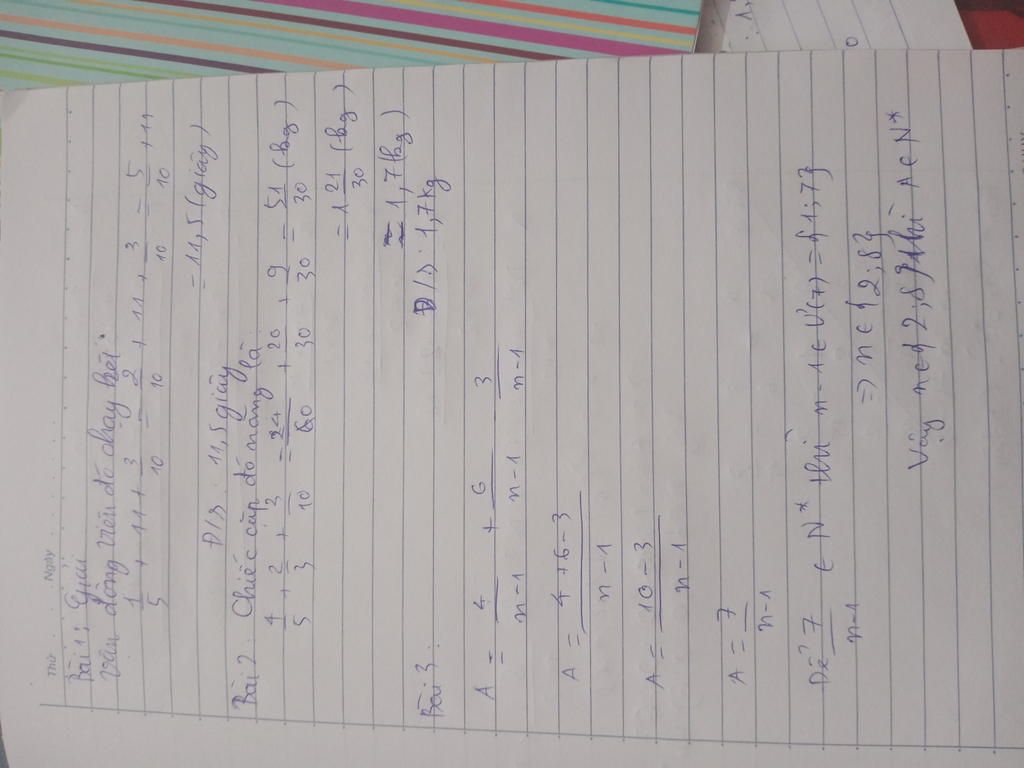 Thứ ... Ngày ...
Bài 1: Giải
Vên động viên đó chạy hết:
1/5 + 11 + 3/10 = 2/10 + 11 + 3/10 = 5/10 + 11
= 11,5 (giây)
Đ/S 11,5 giây
Bài 2. Chiếc cặp đó nặng là:
4/5 + 2/3 + 3/10 = 24/30 + 20/30 + 9/30 = 51/30 (kg)
= 1 21/30 (kg)
= 1,7 (kg)
Đ/S: 1,7 kg
Bài 3:
A = 4/n-1 + 6/n-1 3/n-1
A = 4+6-3/n-1
A = 10-3/n-1
A = 7/n-1
Để 7/n-1 ∈ N* thì n-1 ∈ Ư(7) = {1;7}
=> n ∈ {2;8}
Vậy n∈{2,8} thì A∈N*